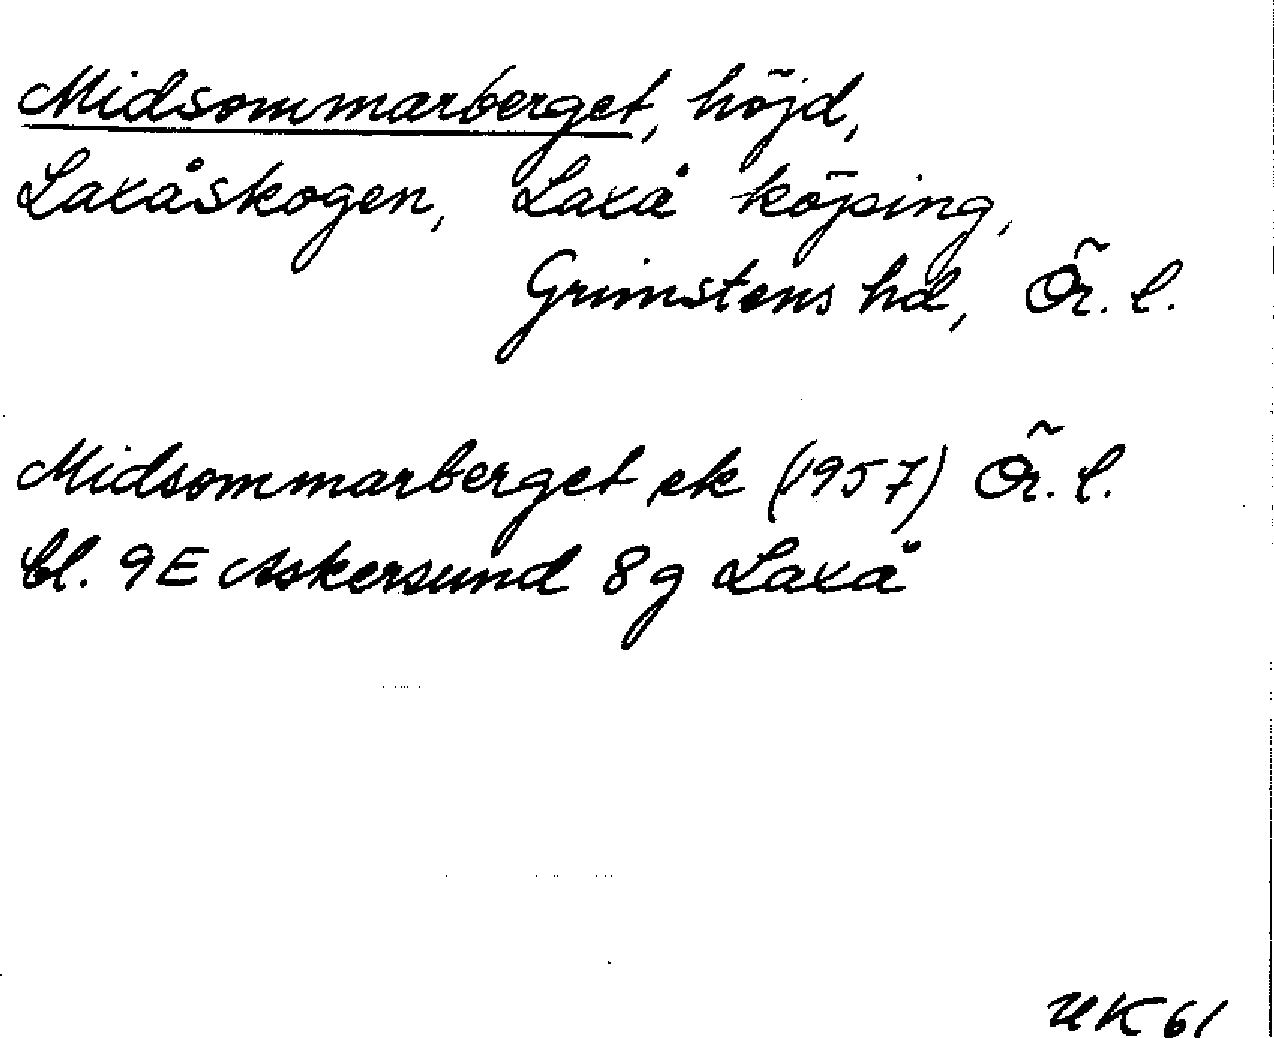 Midsommarberget, höjd,
Laxåskogen, Laxå köping,
Grimstens hd, Ör. l.
Midsommarberget ek (1957) Ör. l.
bl. 9E Askersund 8g Laxå
UK 61